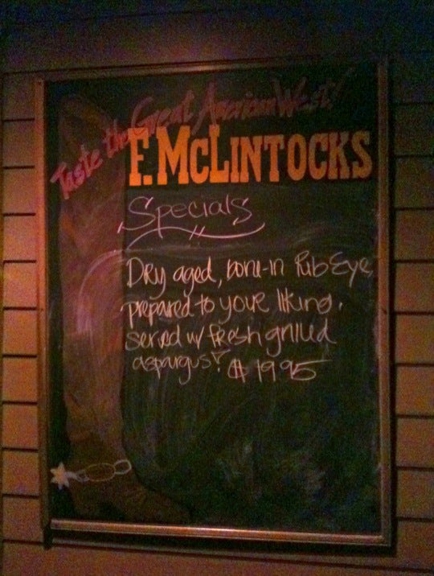 Taste the Great American West!
F. McLINTOCKS
Specials
Dry aged, bone-in Rib Eye,
prepared to your liking.
served w/ fresh grilled
aspargus! $1995